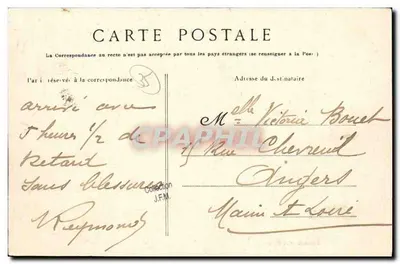 CARTE POSTALE
La Correspondance au recto n'est pas acceptée par tous les pays étrangers (se renseigner à la Poste)
Partie réservée à la correspondance
Adresse du destinataire
arrivé avec
5 heures 1/2 de
Retard
sans blessures
Reymond
Melle Victoria Bouet
Rue Chevreul
Angers
Main et Loire
CPAPHIL.com
Collection
J.F.M.